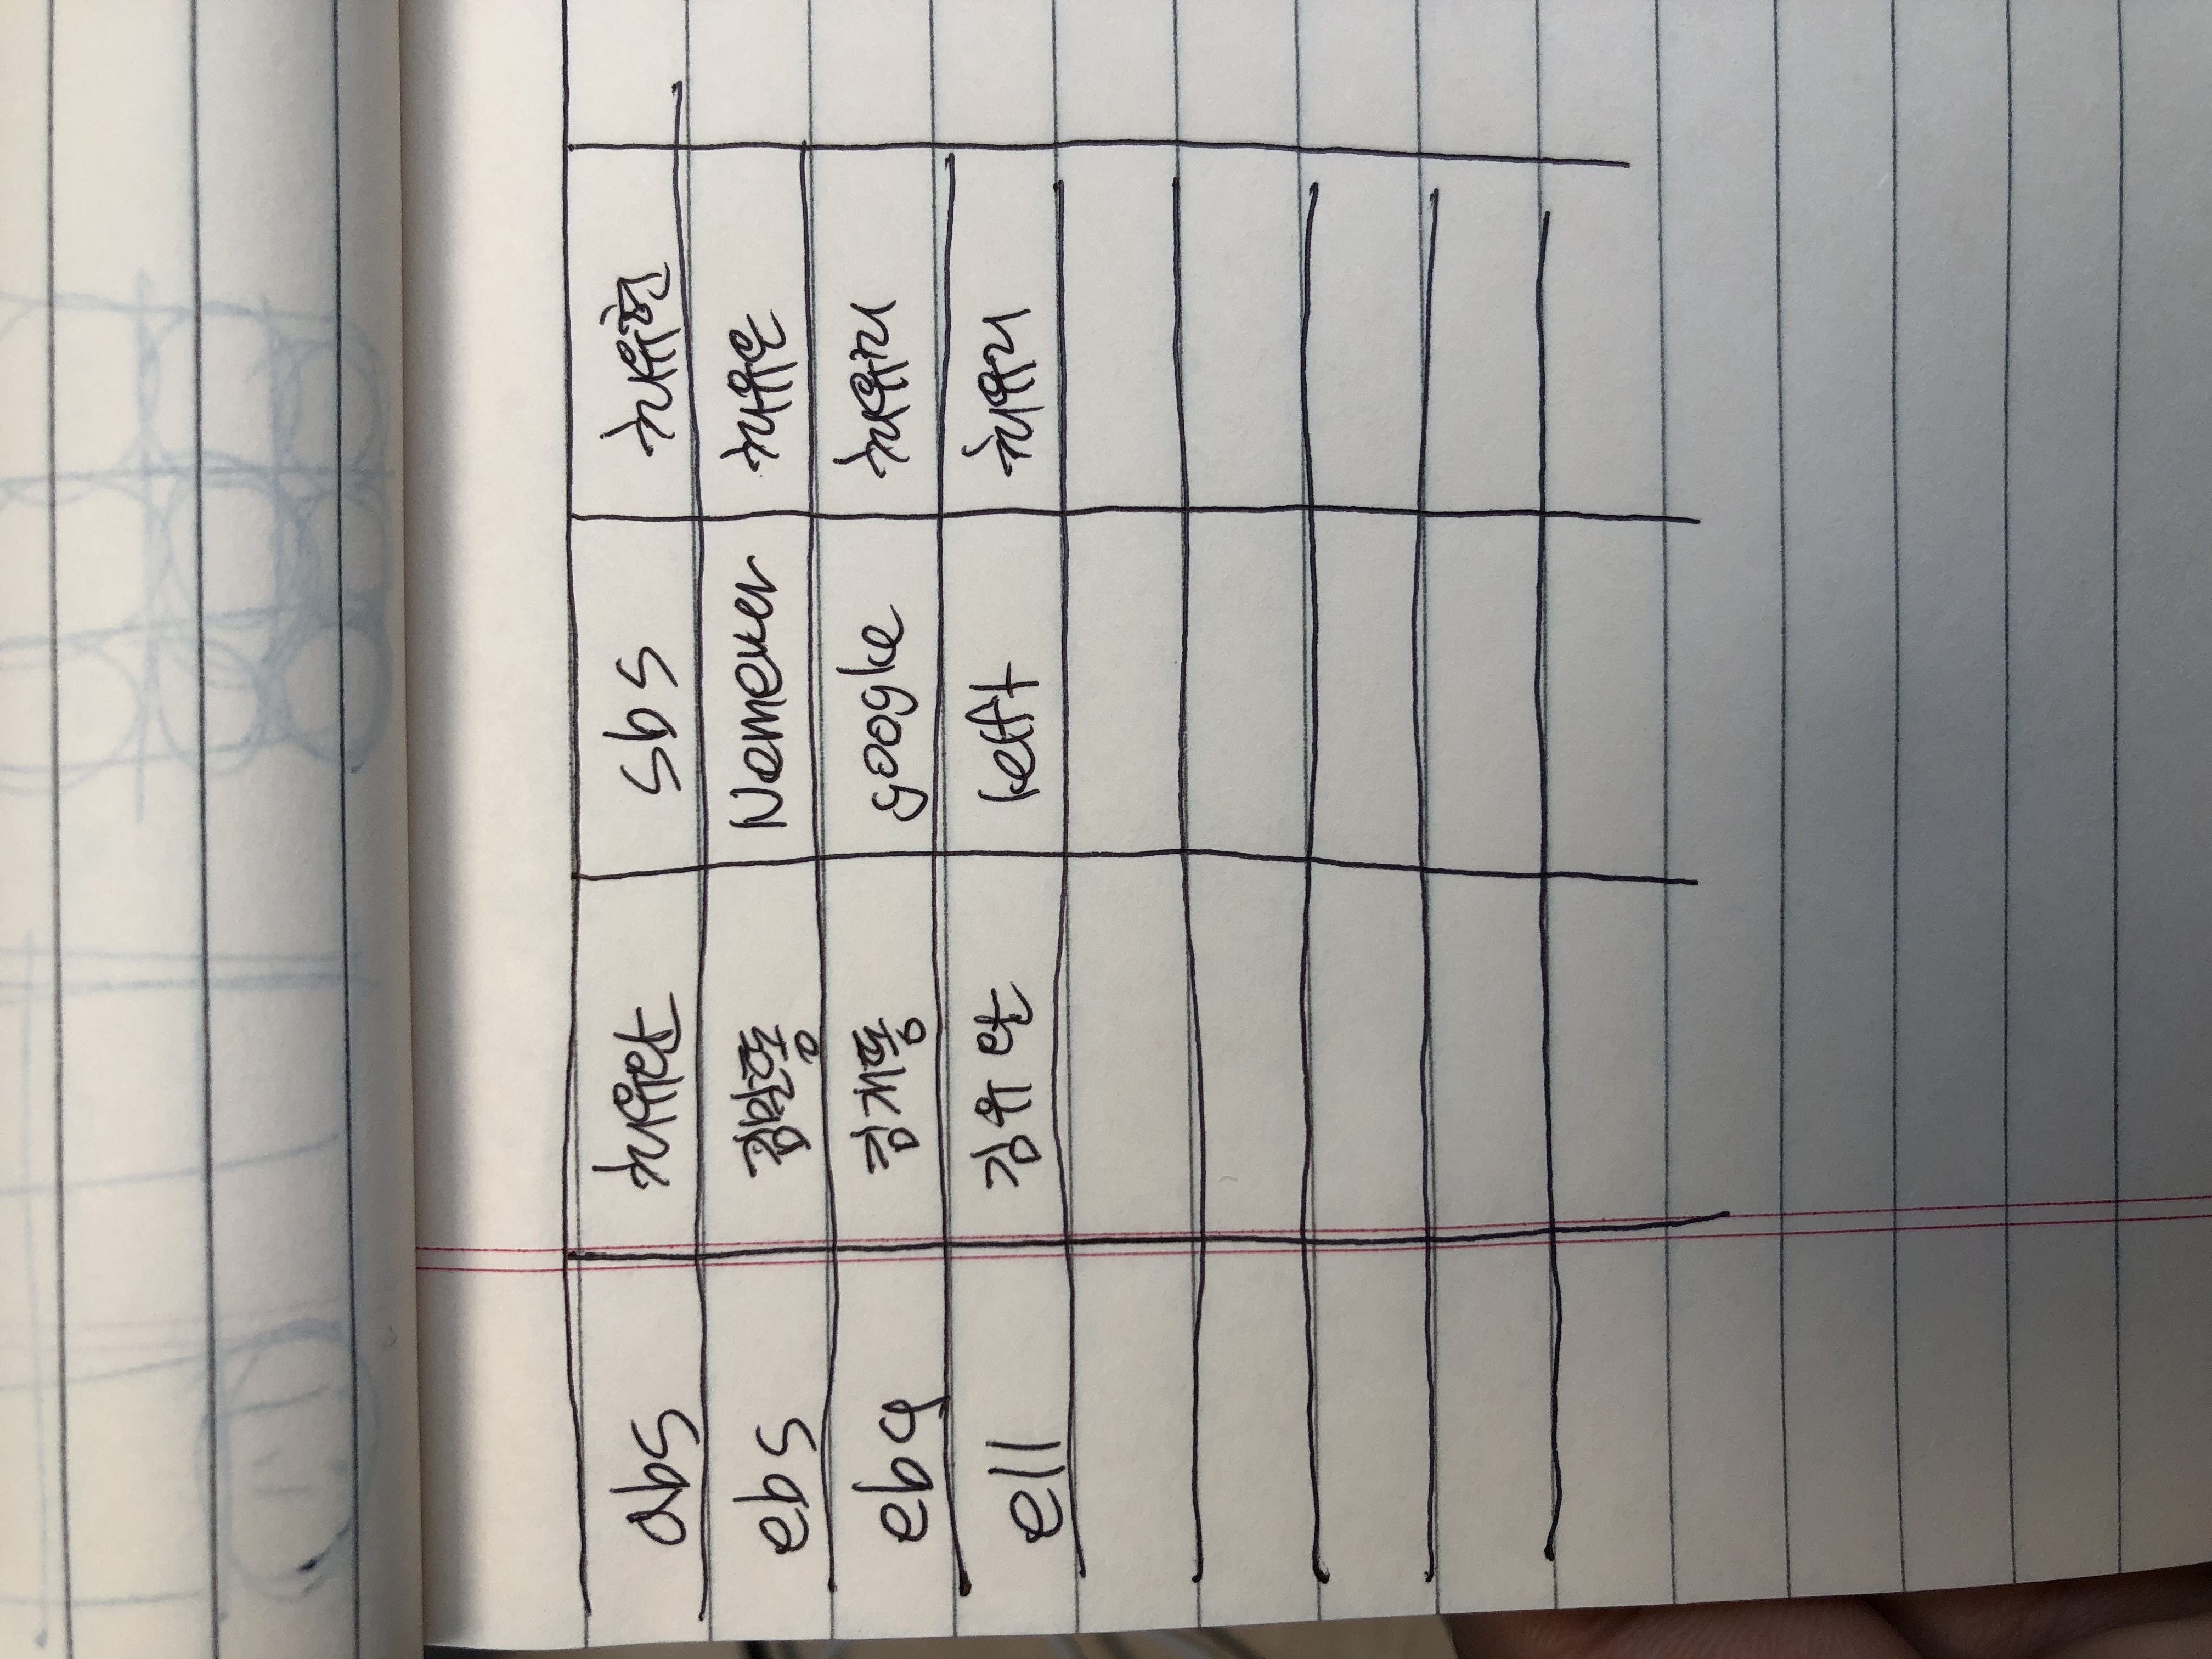 abs 최유안 sbs 최유현
ebs 김말똥 Nemever 최유온
ebq 김개똥 google 최유리
ell 김유안 left 최유리